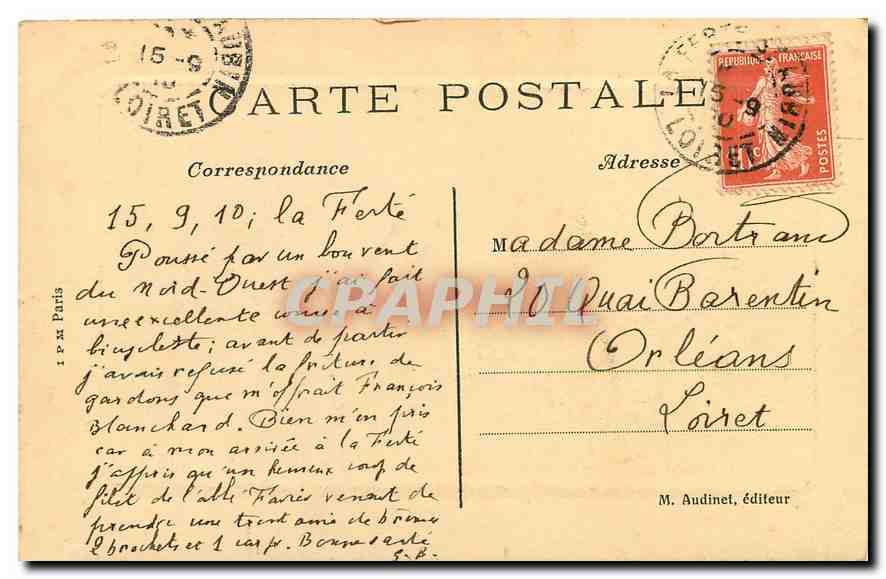 15 -9
10
LOIRET
AUBIN
CARTE POSTALE
LA FERTE
AUBIN
15 9
10
LOIRET
REPUBLIQUE FRANÇAISE
POSTES
10c
Correspondance
Adresse
15, 9, 10; la Ferté
Poussé par un bon vent
du Nord-Ouest j'ai fait
une excellente course à
bicyclette; avant de partir
j'avais refusé la friture de
gardons que m'offrait François
Blanchard. Bien m'en pris
car à mon arrivée à la Ferté
j'appris qu'un heureux coup de
filet de l'abbé venait de
prendre une trentaine de brèmes
2 brochets et 1 carpe. Bonne santé
G. B.
Madame Bertrand
20 Quai Barentin
Orléans
Loiret
I P M Paris
M. Audinet, éditeur
CPAPHIL